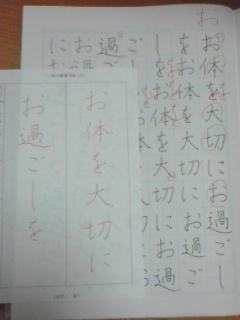 お
お体を大切にお過ごし
をお体を大切にお過ご
しをお体を大切にお過
ごし
過ご
お過
にお
お体を大切に
お過ごしを